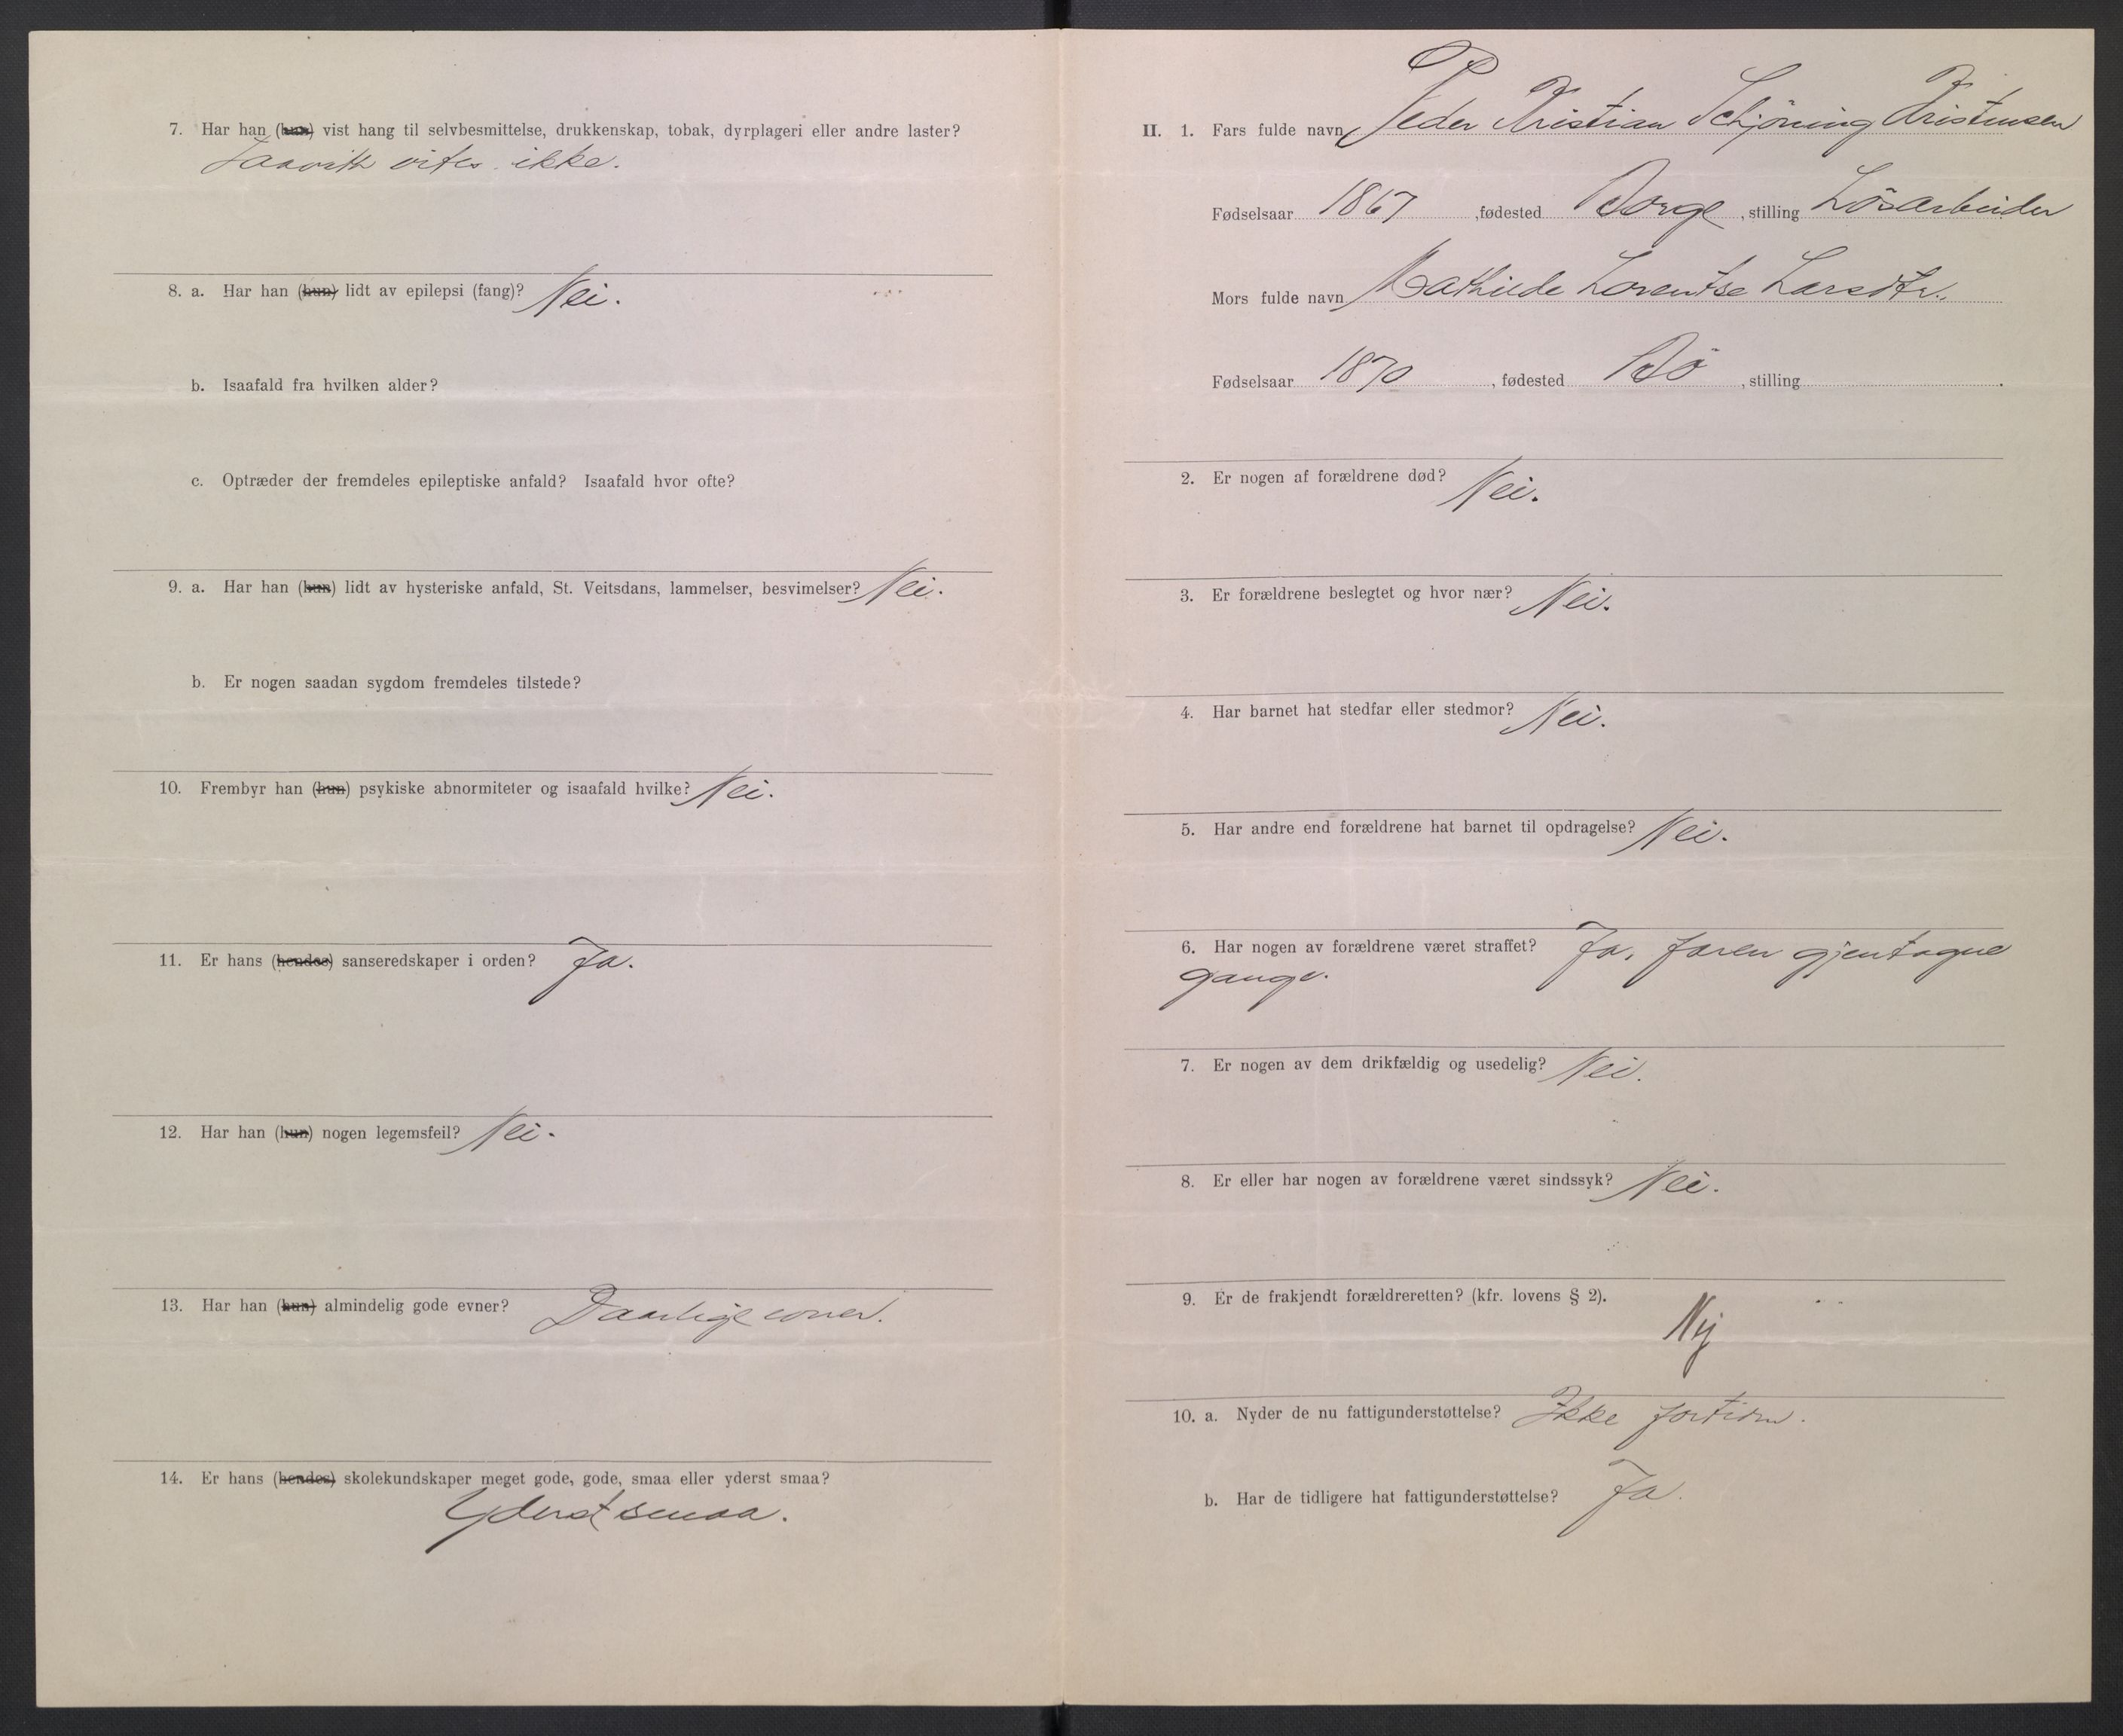 7. Har han (hun) vist hang til selvbesmittelse, drukkenskap, tobak, dyrplageri eller andre laster?
Saavidt vites ikke.
8. a. Har han (hun) lidt av epilepsi (fang)? Nei.
b. Isaafald fra hvilken alder?
c. Optræder der fremdeles epileptiske anfald? Isaafald hvor ofte?
9. a. Har han (hun) lidt av hysteriske anfald, St. Veitsdans, lammelser, besvimelser? Nei.
b. Er nogen saadan sygdom fremdeles tilstede?
10. Frembyr han (hun) psykiske abnormiteter og isaafald hvilke? Nei.
11. Er hans (hendes) sanseredskaper i orden? Ja.
12. Har han (hun) nogen legemsfeil? Nei.
13. Har han (hun) almindelig gode evner? Daarlige evner.
14. Er hans (hendes) skolekundskaper meget gode, gode, smaa eller yderst smaa?
Yderst smaa.
II. 1. Fars fulde navn Peder Kristian Schjöning Kristensen
Fødselsaar 1867, fødested Borge, stilling Lösarbeider
Mors fulde navn Mathilde Lorentse Larsdtr.
Fødselsaar 1870, fødested Bö, stilling
2. Er nogen af forældrene død? Nei.
3. Er forældrene beslegtet og hvor nær? Nei.
4. Har barnet hat stedfar eller stedmor? Nei.
5. Har andre end forældrene hat barnet til opdragelse? Nei.
6. Har nogen av forældrene været straffet? Ja, faren gjentagne
gange.
7. Er nogen av dem drikfældig og usedelig? Nei.
8. Er eller har nogen av forældrene været sindssyk? Nei.
9. Er de frakjendt forældreretten? (kfr. lovens § 2).
Nej
10. a. Nyder de nu fattigunderstøttelse? Ikke fortiden.
b. Har de tidligere hat fattigunderstøttelse? Ja.